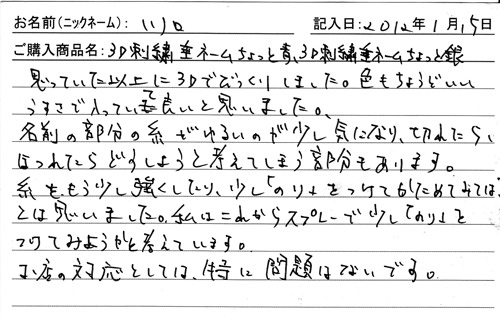 お名前(ニックネーム): いり口
記入日:2012年1月15日
ご購入商品名:3D刺繍重ネームちょっと青、3D刺繍重ネームちょっと銀
思っていた以上に3Dでびっくりしました。色もちょうどいい
うすさで入っていて良いと思いました。
名前の部分の糸がゆるいのが少し気になり、切れたら、
ほつれたらどうしようと考えてしまう部分もあります。
糸をもう少し強くしたり、少し「のり」をつけてかためてみては?
とは思いました。私はこれからスプレーで少し「のり」を
つけてみようかと考えています。
お店の対応としては、特に問題はないです。